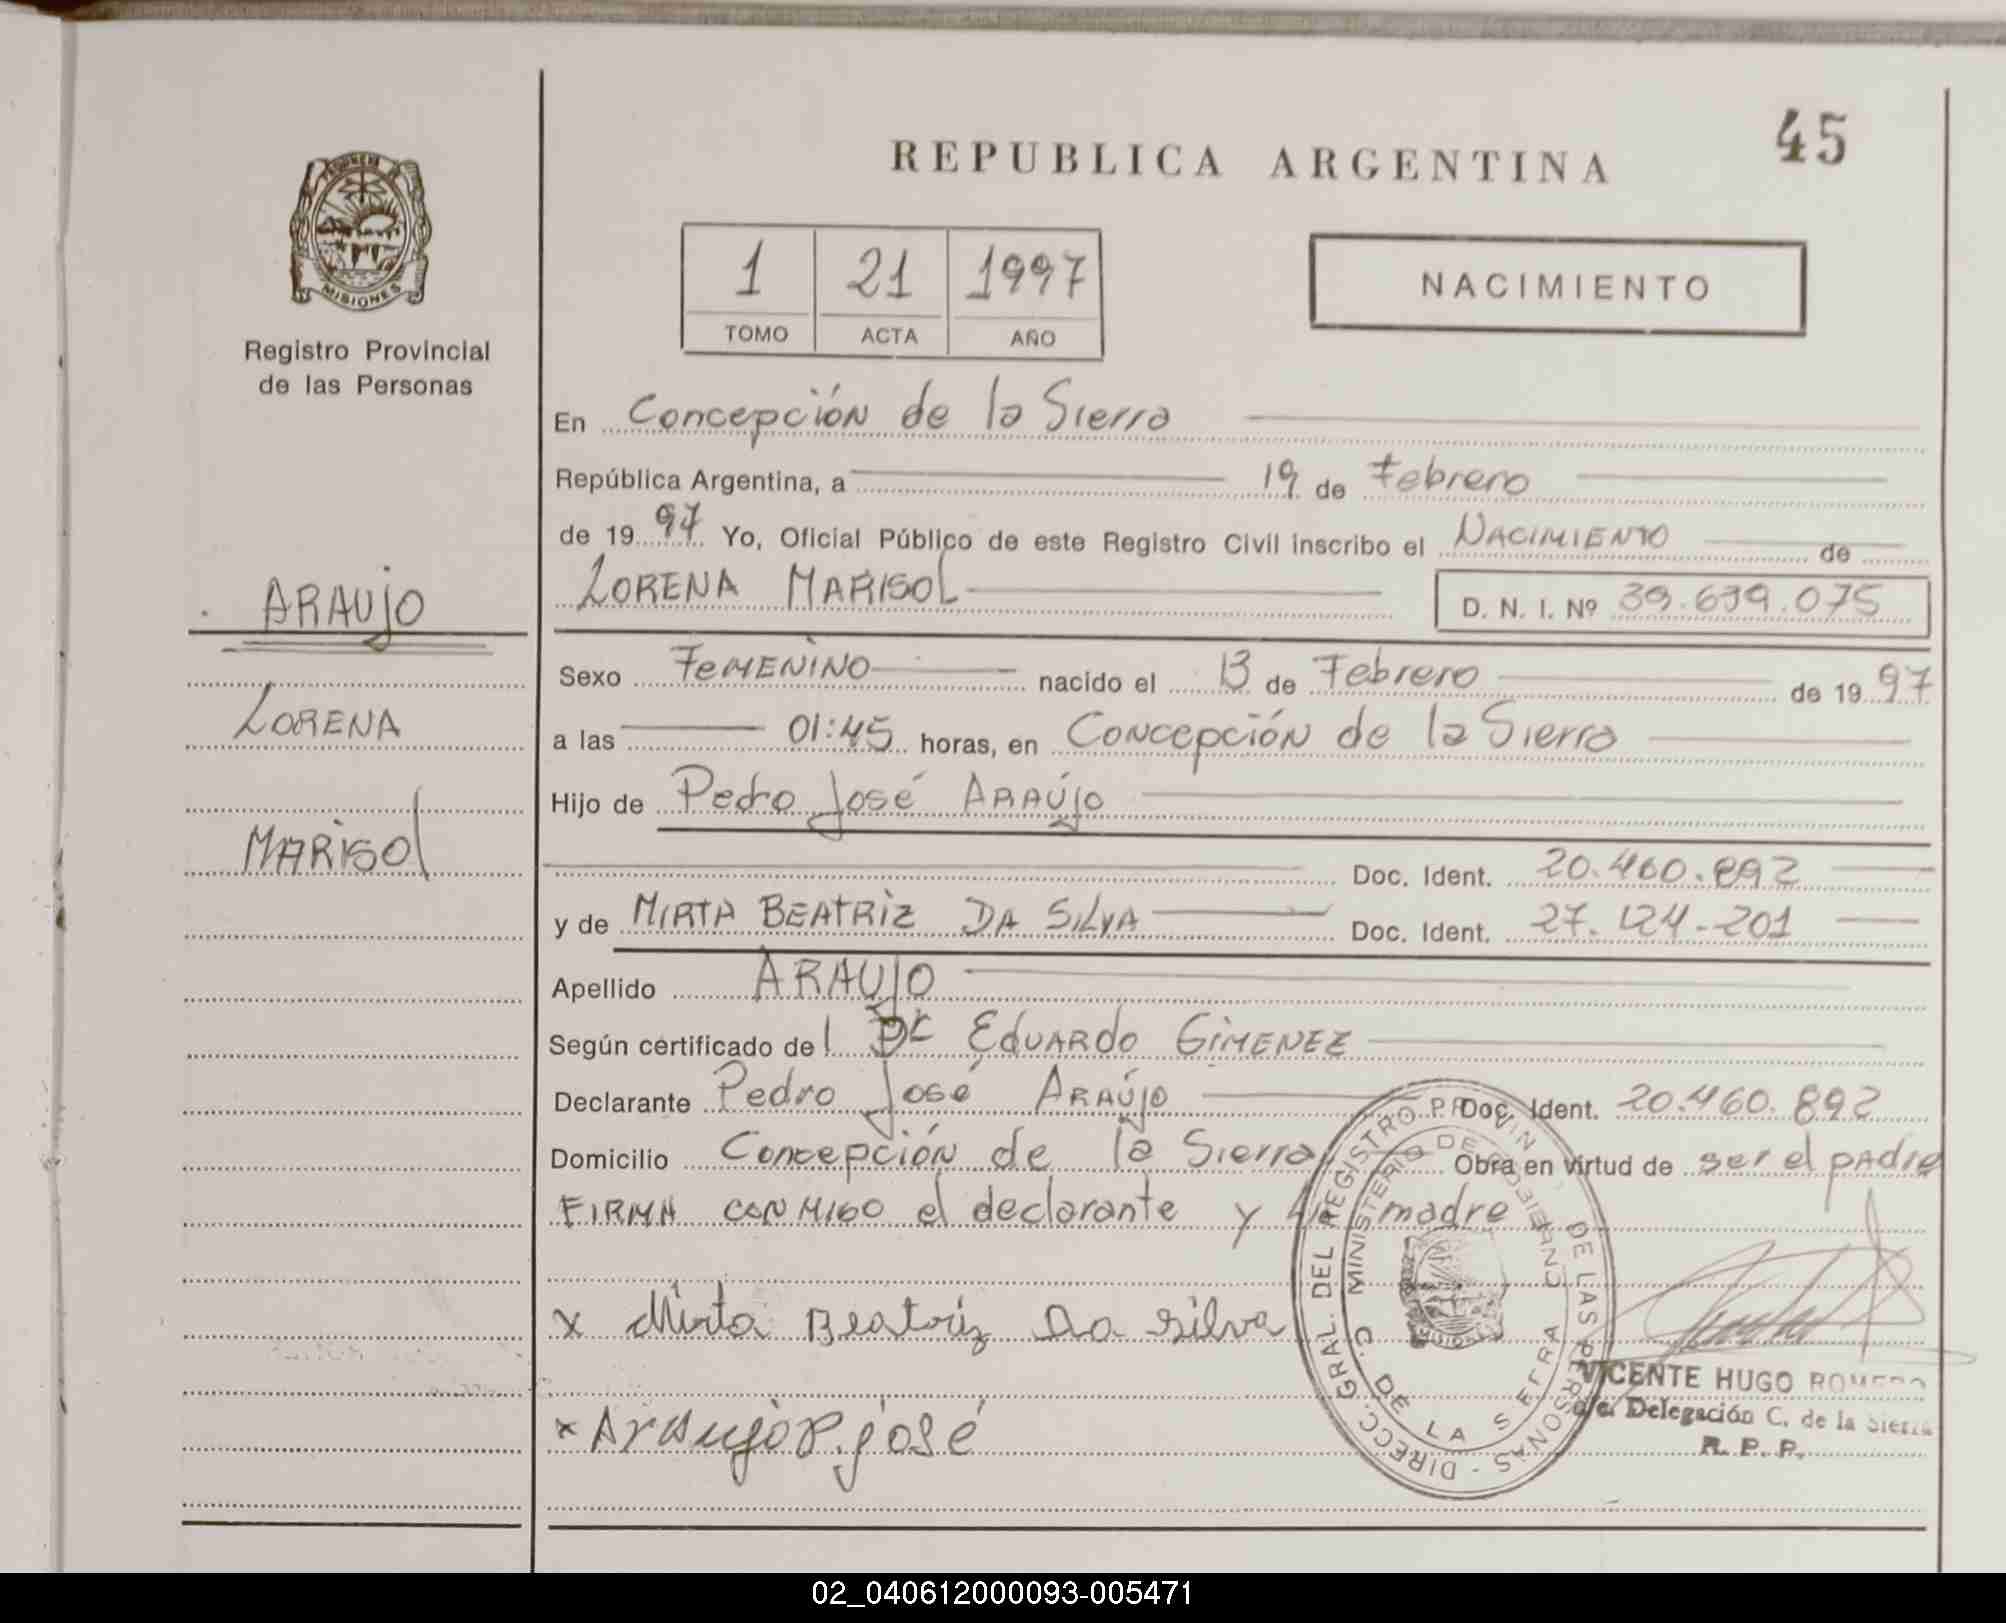 REPUBLICA ARGENTINA
45
MISIONES
Registro Provincial
de las Personas
1 21 1997
TOMO ACTA AÑO
NACIMIENTO
ARAUJO
LORENA
MARISOL
En Concepción de la Sierra
República Argentina, a 19 de Febrero
de 1997 Yo, Oficial Público de este Registro Civil inscribo el NACIMIENTO de
LORENA MARISOL D. N. I. Nº 39.639.075
Sexo FEMENINO nacido el 13 de Febrero de 1997
a las 01:45 horas, en Concepción de la Sierra
Hijo de Pedro José ARAÚJO
Doc. Ident. 20.460.892
y de MIRTA BEATRIZ DA SILVA Doc. Ident. 27.124.201
Apellido ARAUJO
Según certificado del Dr EDUARDO GIMENEZ
Declarante Pedro José ARAÚJO Doc. Ident. 20.460.892
Domicilio Concepción de la Sierra Obra en virtud de ser el padre
FIRMA CONMIGO el declarante y la madre
x Mirta Beatriz Da Silva
x Araujo P. josé
DIRECC. GRAL. DEL REGISTRO PROVIN DE LAS PERSONAS -
MINISTERIO DE GOBIERNO
C. DE LA SIERRA
VICENTE HUGO ROMERO
a/c. Delegación C. de la Sierra
R. P. P.
02_040612000093-005471